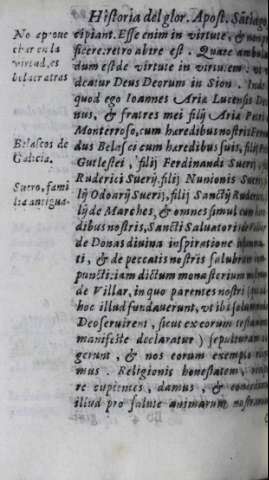 Historia del glor. Apost. Sãtiago
No aproue
char en la
virtud, es
boluer atras
Belascos de
Galicia.
Suero, fami
lia antigua.
cipiant. Esse enim in virtute, & non
ficere, retro abire est. Quare ambulan
dum est de virtute in virtutem: ut
deatur Deus Deorum in Sion.
quod ego Ioannes Aria Lucensis De
nus, & fratres mei filij Aria Petri
Monterroso, cum haredibus nostris Fernan
dus Belasci cum haredibus suis, filij
Gutlestei, filij Ferdinandi Suerij,
Ruderici Suerij, filij Nunionis Suerij
lij Odoarij Suerij, filij Sanctij Ruderici
lij de Marches, & omnes simul cum hare
dibus nostris, Sancti Saluatoris de Villar
de Donas diuina inspiratione
ti, & de peccatis nostris salubriter com
puncti: iam dictum monasterium
de Villar, in quo parentes nostri
hoc illud fundauerunt, vt ibi
Deo seruirent, sicut ex eorum testamen
manifeste declaratur) sepulturam
gerunt, & nos eorum exemplo
mus. Religionis honestatem
re cupientes, damus, & concedimus
illud pro salute animarum nostrarum